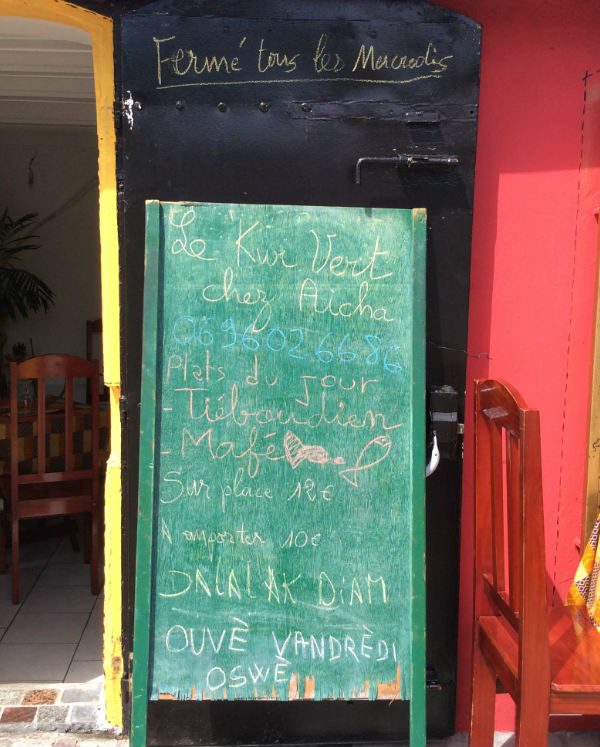 Fermé tous les Mercredis
Le Kur Vert
chez Aïcha
0696026686
Plats du jour
- Tiéboudien
- Mafé
Sur place 12€
A emporter 10€
DALALAK DIAM
OUVÈ VANDRÈDI
OSWÈ